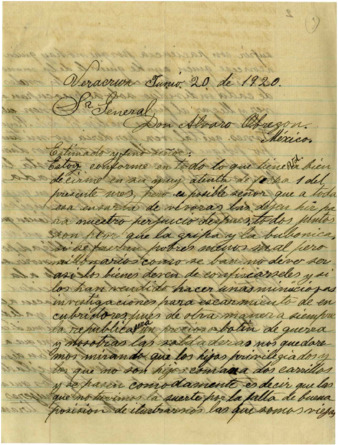 Veracruz Junio 20 de 1920.
Sr. General
Don Alvaro Obregon.
México.
Estimado y fino señor:
Estoy conforme en todo lo que tiene Ud. bien
decirme en su muy atenta de fecha 1 del
presente mes, pero es posible señor que a
esa de los dejen
a nuestro perjuicio despues todos juntos
son que la gripa y la bubonica,
si se fueran pobres menos mal pero
millonarios como se van no deve ser
asi los bienes deven de confiscarseles y si
los han vendido hacer unas minuciosas
investigaciones para escarmiento de en
cubridores pues de otra manera siempre
la republica sera preciosa botin de guerra
y nosotras las soldaderas nos queda
mos mirando que los hijos privilegiados y
los que no son hijos coman a dos carrillos
y se pasen comodamente es decir que las
que no tuvimos la suerte por la falta de buena
posicion de ilustrarnos las que somos